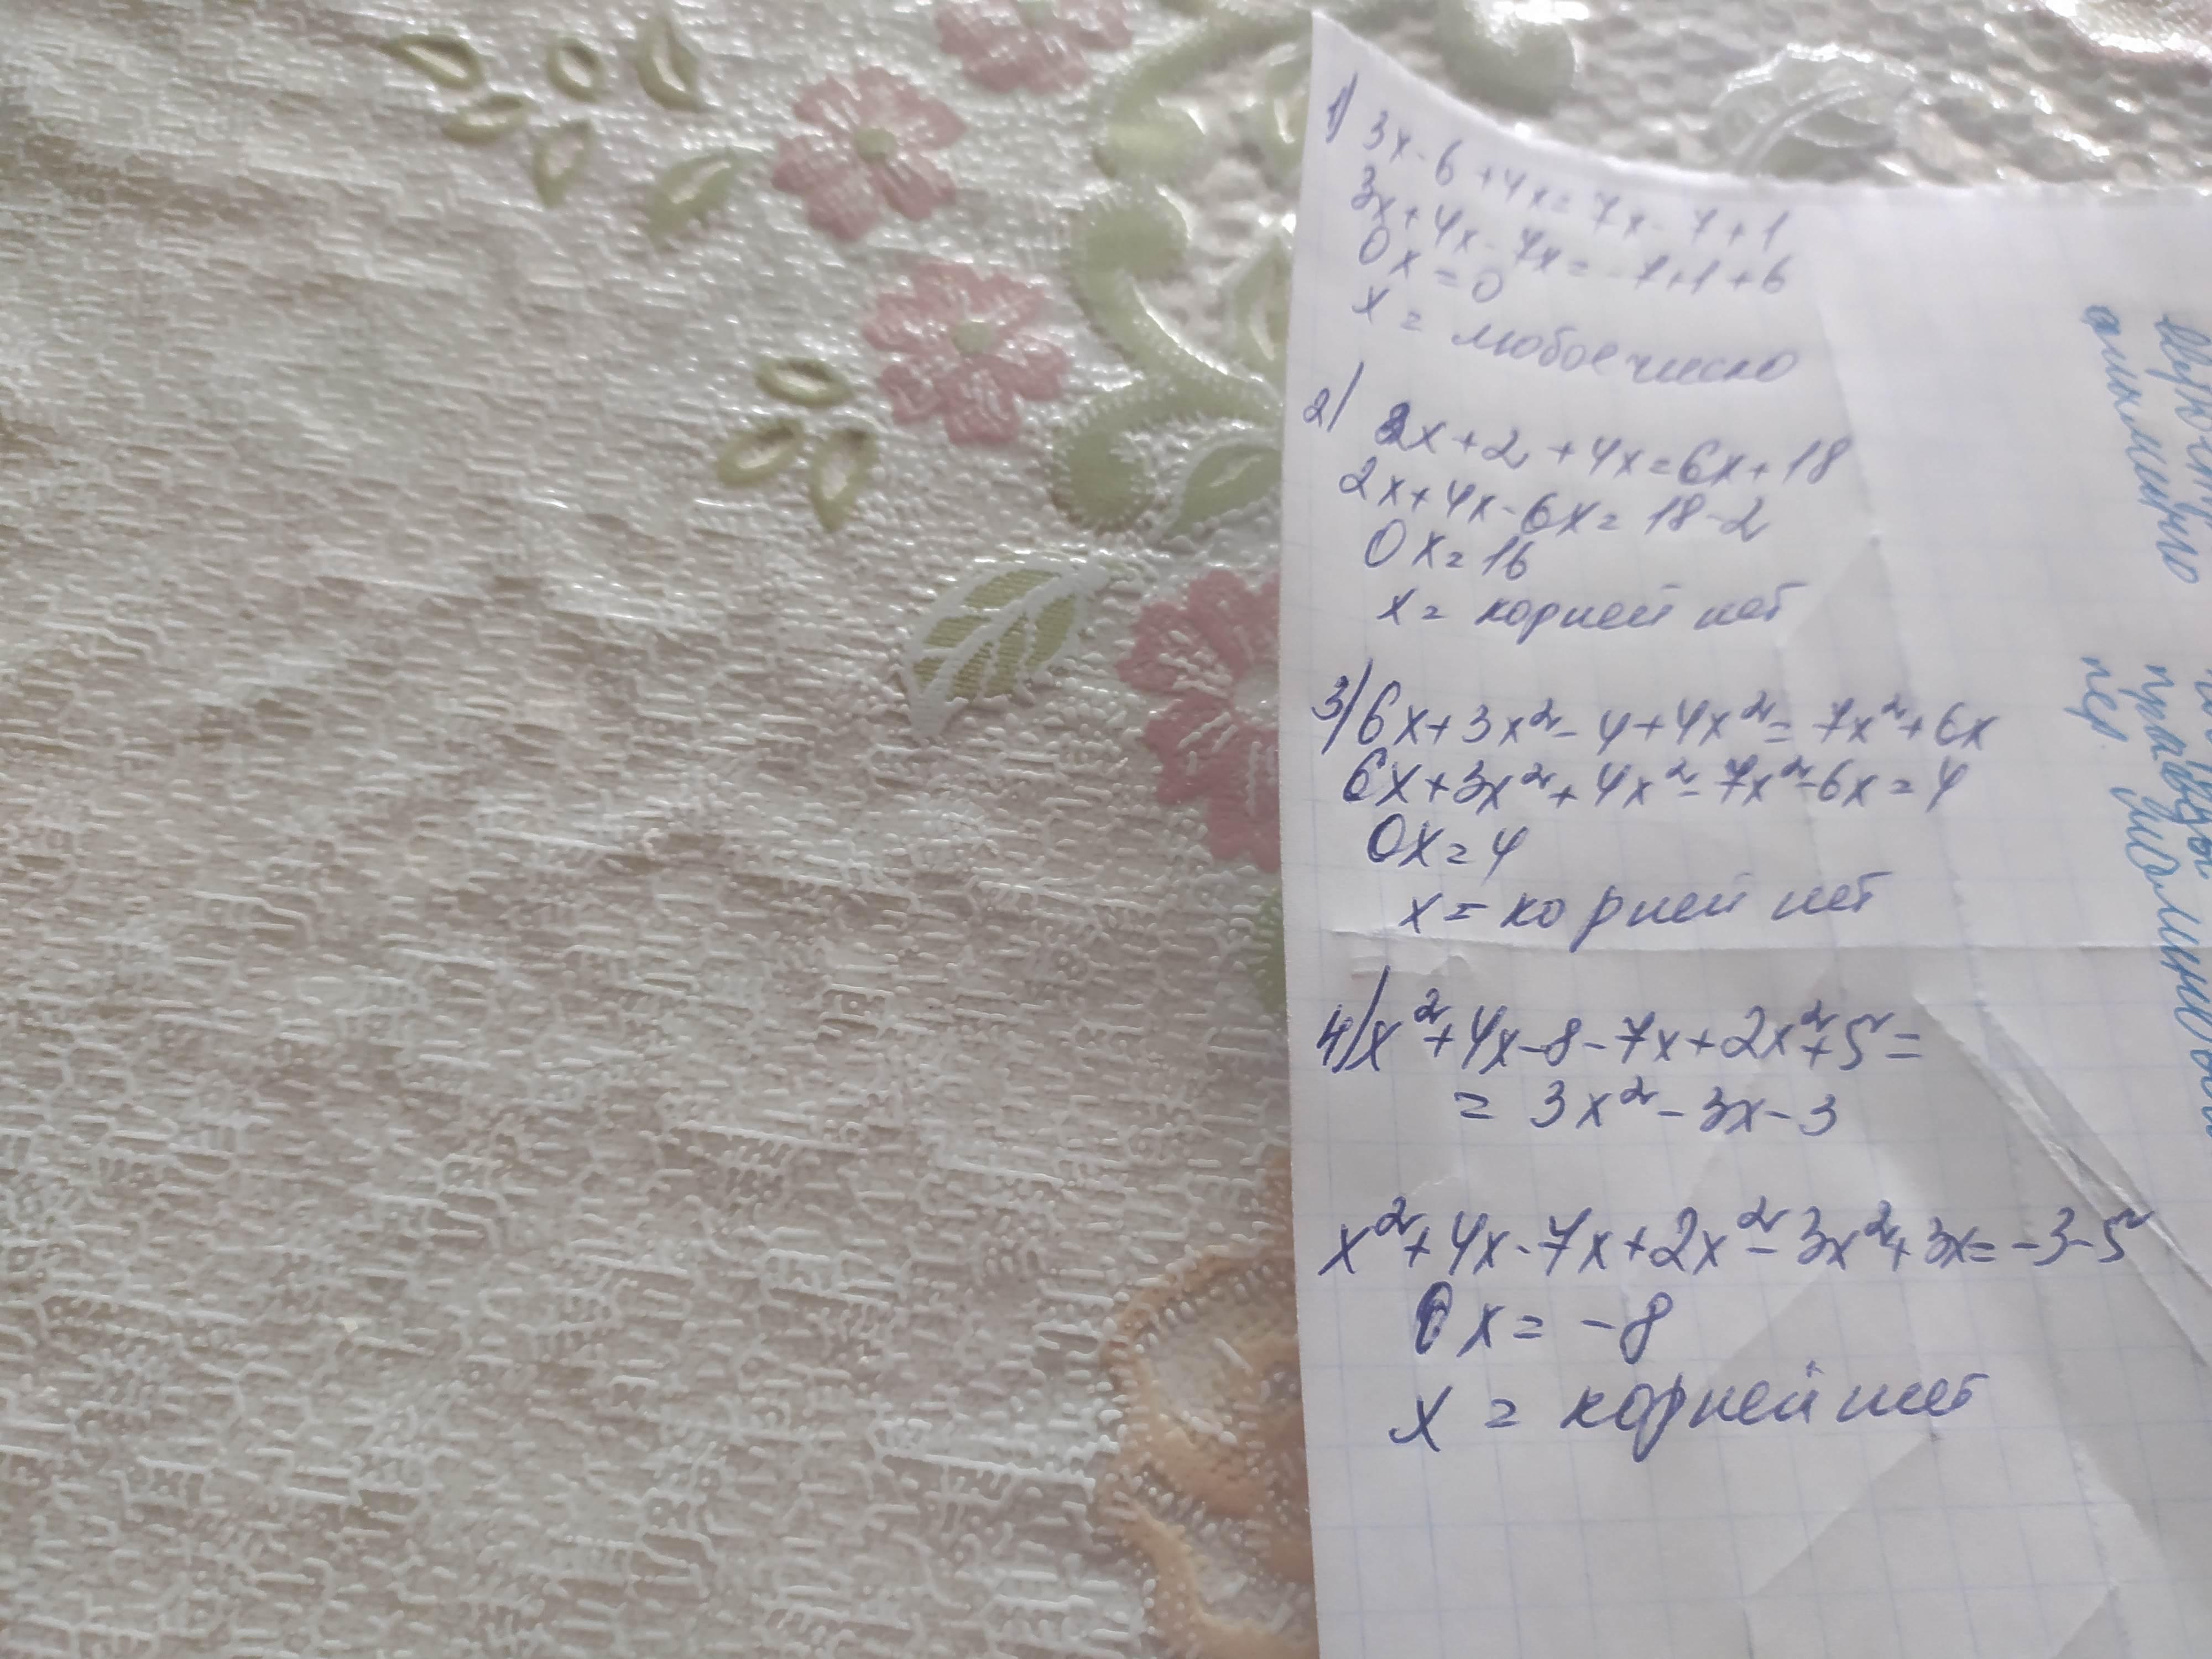 1) 3x-6+4x=7x-7+1
3x+4x-7x=-7+1+6
0x=0
x = любое число
2) 2x+2+4x=6x+18
2x+4x-6x=18-2
0x=16
x = корней нет
3) 6x+3x²-4+4x²=7x²+6x
6x+3x²+4x²-7x²-6x=4
0x=4
x = корней нет
4) x²+4x-8-7x+2x²+5=
= 3x²-3x-3
x²+4x-7x+2x²-3x²+3x=-3-5
0x=-8
x = корней нет